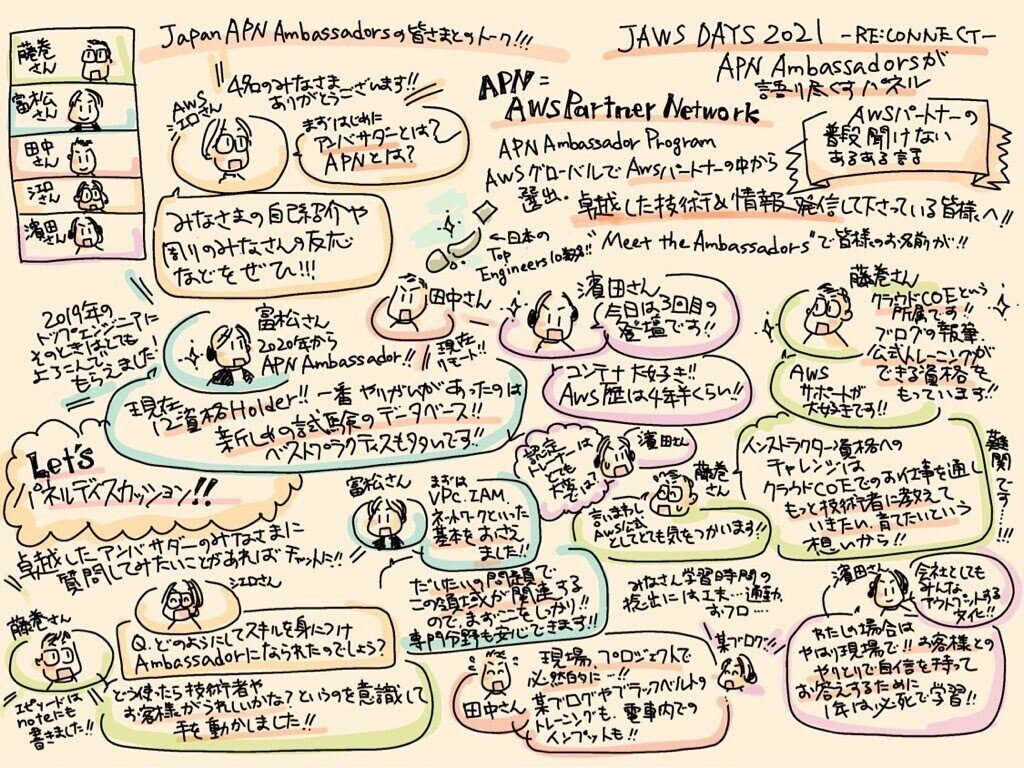 Japan APN Ambassadorsの皆さまとのトーク!!!
JAWS DAYS 2021 -RE:CONNECT-
APN Ambassadorsが
語り尽くすパネル
藤巻
さん
富松
さん
田中
さん
シエロ
さん
濱田
さん
AWS
シエロさん
4名のみなさま
ありがとうございます!!
まずはじめに
アンバサダーとは?
APNとは?
みなさまの自己紹介や
周りのみなさんの反応
などをぜひ!!!
APN=
AWS Partner Network
APN Ambassador Program
AWSグローバルでAWSパートナーの中から
選出。
卓越した技術力&情報発信して下さっている皆様へ!!
AWSパートナーの
普段聞けない
あるある話
←日本の
Top
Engineers10数名!!
"Meet the Ambassadors"で皆様のお名前が!!
2019年の
トップエンジニアに
そのときはとても
よろこんで
もらえました!
富松さん
2020年から
APN Ambassador!!
現在
12資格Holder!! 一番やりがいがあったのは
新しめの試験のデータベース!!
ベストプラクティスもタタいです!!
田中さん
現在
リモート!!
濱田さん
今日は3回目の
登壇です!!
コンテナ大好き!!
AWS歴は4年半くらい!!
藤巻さん
クラウドCOEという
所属です!!
ブログの執筆、
公式トレーニングが
できる資格を
もっています!!
AWS
サポートが
大好きです!!
Let's
パネルディスカッション!!
卓越したアンバサダーのみなさまに
質問してみたいことがあればチャットに!!
シエロさん
Q.どのようにしてスキルを身につけ
Ambassadorになられたのでしょう?
藤巻
さん
どう使ったら技術者や
お客様がうれしいかな?というのを意識して
手を動かしました!!
エピソードは
noteにも
書きました!!
富松さん
まずは
VPC、IAM、
ネットワークといった
基本をおさえ
ました!!
だいたいの問題で
この領域が関連する
ので、まずここをしっかり!!
専門分野も安心できます!!
認定
トレーナーは
とても
大変では?
濱田さん
藤巻
さん
言いまわし
AWS公式
としてとても気をつかいます!!
インストラクター資格への
チャレンジは
クラウドCOEでのお仕事を通し
もっと技術者に教えて
いきたい、育てたいという
想いから!!
難関です…!!!
みなさん学習時間の
捻出には工夫…通勤、
おフロ…
田中さん
現場、プロジェクトで
必然的に…!!
某ブログやブラックベルトの
トレーニングも、電車内での
インプットも!!
某ブログ!!
濱田さん
会社としても
みんな、
アウトプットする
タイプ!!
わたしの場合は
やはり現場で!! お客様との
やりとりで自信を持って
お答えするために
1年は必死で学習!!